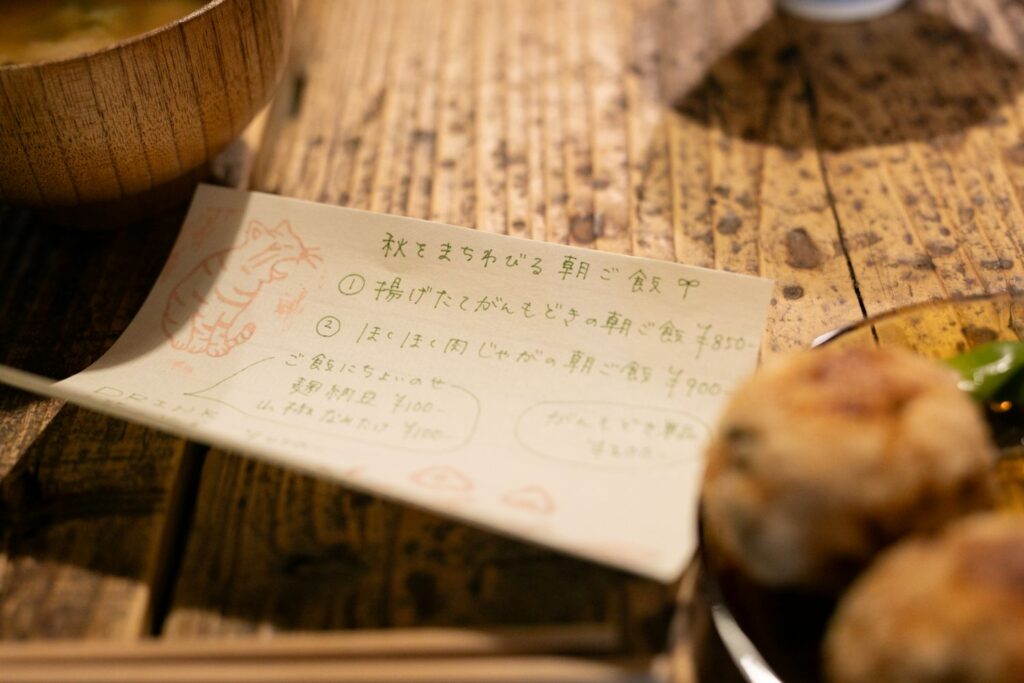 秋をまちわびる 朝ご飯
① 揚げたてがんもどきの朝ご飯 ¥850-
② ほくほく肉じゃがの朝ご飯 ¥900-
ご飯にちょいのせ
麹納豆 ¥100-
山椒なめたけ ¥100-
がんもどき単品
¥200-
DRINK